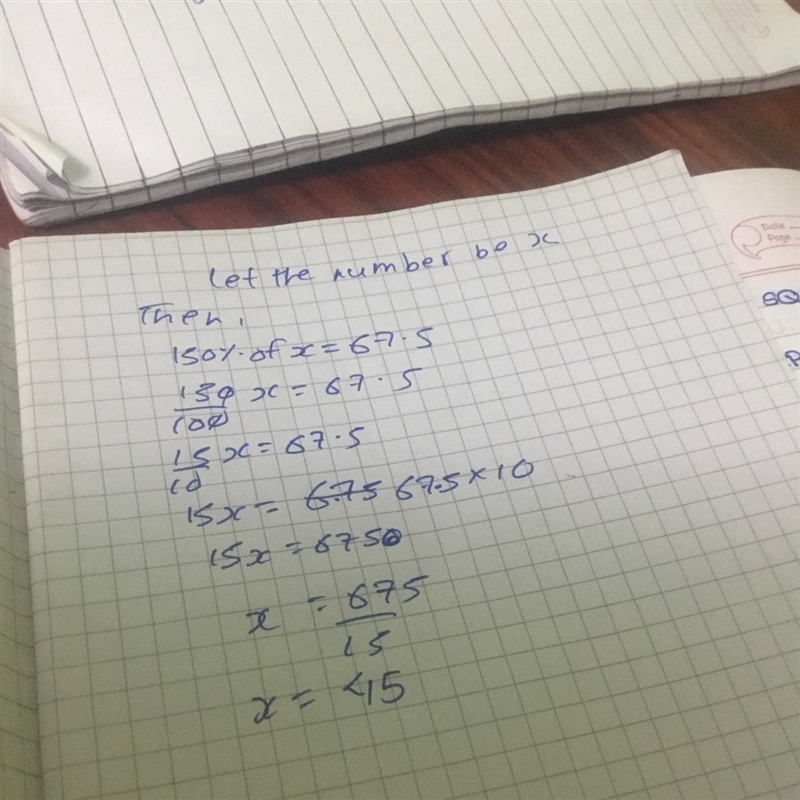 Let the number be x
Then,
150% of x = 67.5
150/100 x = 67.5
15/10 x = 67.5
15x = 67.5 × 10
15x = 675
x = 675/15
x = 45
Date
Page
SQ